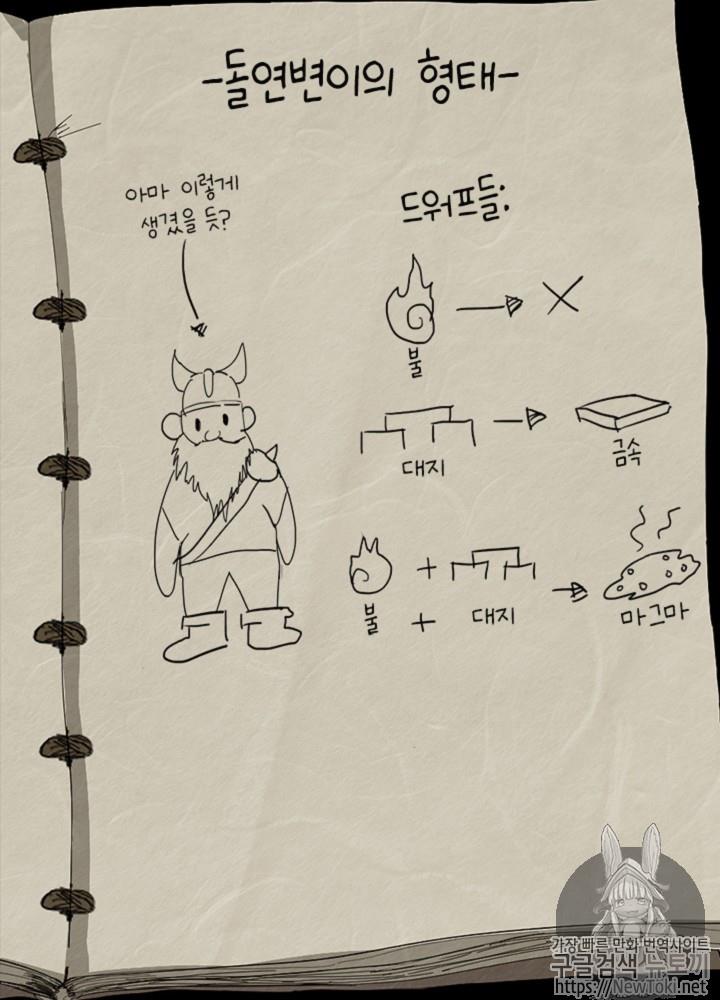 -돌연변이의 형태-
아마 이렇게
생겼을 듯?
드워프들:
불
대지
금속
불 + 대지
마그마
가장 빠른 만화 번역사이트
구글검색 뉴토끼
https://NewToki.net